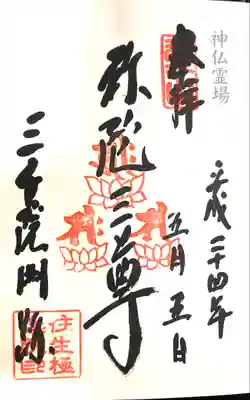 神仏霊場
奉拝
平成二十四年
五月五日
弥陀三尊
三千院門跡
往生極